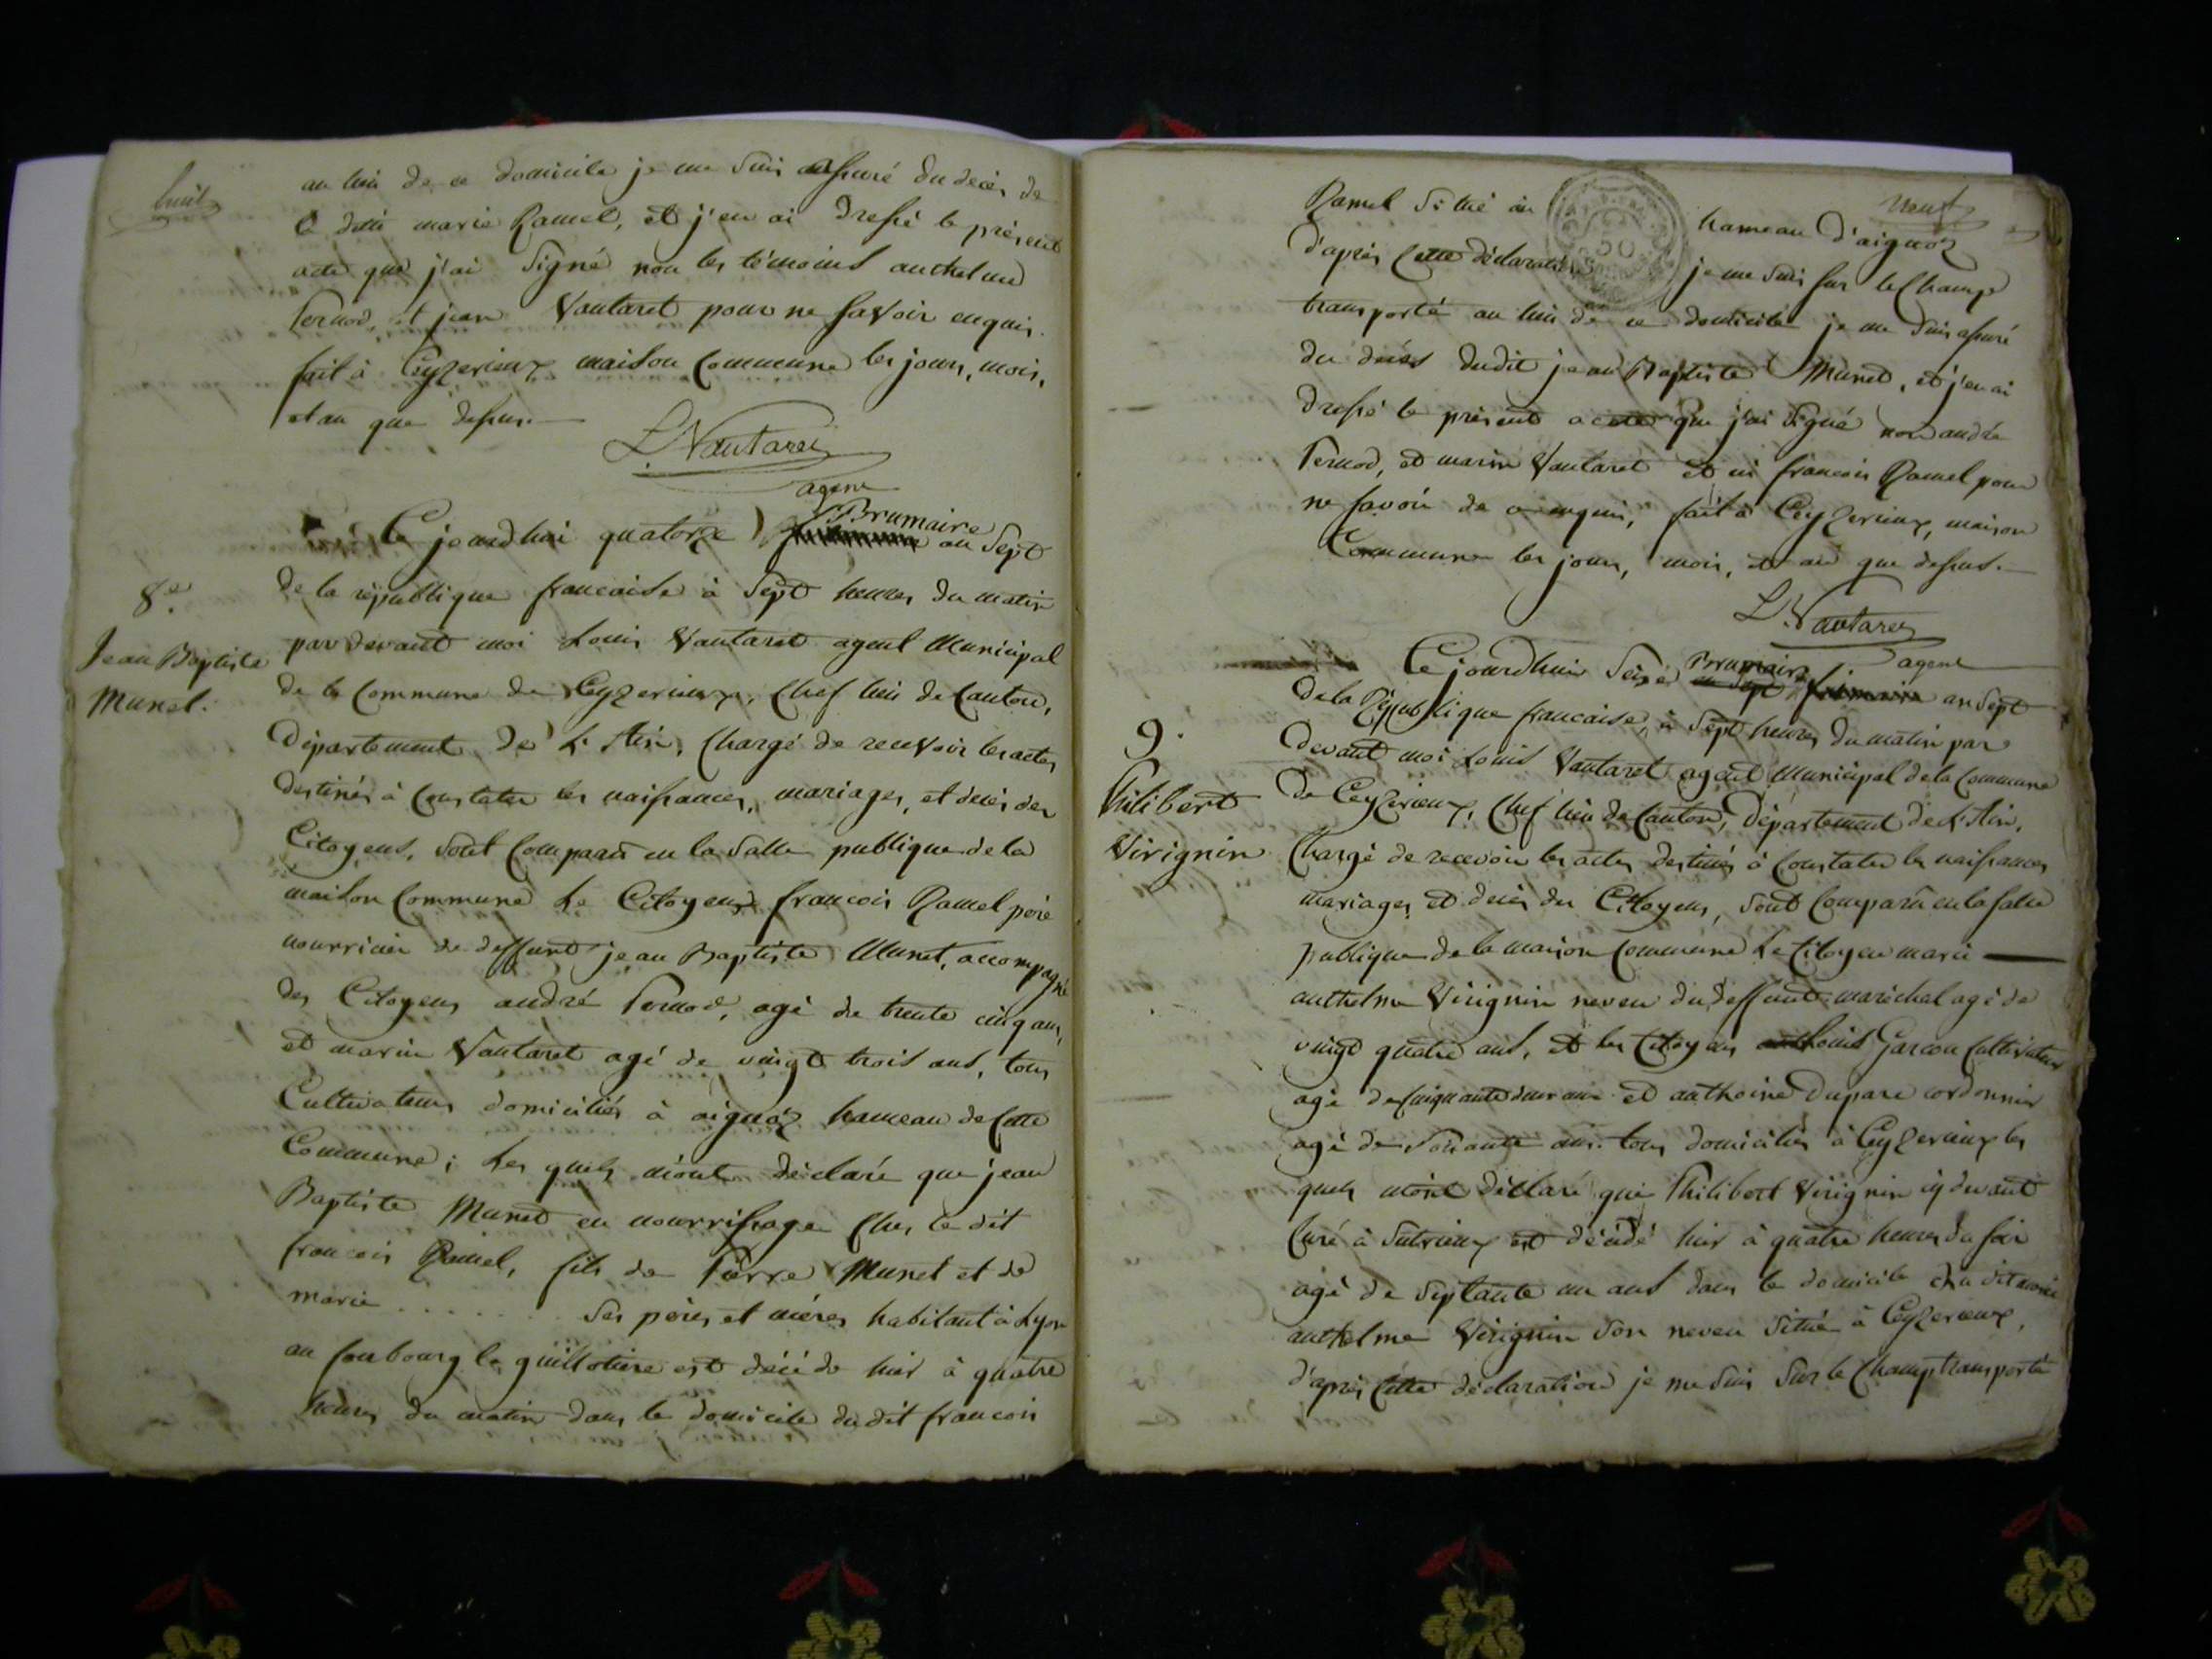 huit
au lieu de ce domicile je me suis assuré du décès de
la ditte marie Ramel, et j'en ai dressé le présent
acte que j'ai Signé non les témoins anthelme
Pernod, et jean Vautaret pour ne savoir enquis.
fait à Ceyzerieux maison Commune les jours, mois,
et an que dessus.
L. Vautaret
agent
Ce jourdhui quatorze Brumaire an Sept
8e.
Jean Baptiste
Munet.
de la république francaise à Sept heures du matin
par devant moi Louis Vautaret agent Municipal
de la Commune de Ceyzerieux, Chef lieu de Canton,
Département de L'Ain, Chargé de recevoir les actes
destinés à Constater les naissances, mariages, et décès des
Citoyens, sont Comparû en la Salle publique de la
maison Commune Le Citoyens francois Ramel père
nourricier de deffunt jean Baptiste Munet, accompagné
des Citoyens andré Pernod, agé de trente cinq ans,
et marin Vautaret agé de vingt trois ans, tous
Cultivateurs domiciliés à aignoz hameau de Cette
Commune; Les quels m'ont déclaré que jean
Baptiste Munet en nourrissage Chez le dit
francois Ramel, fils de Pierre Munet et de
marie . . . . . . Ses pères et mères habitant à Lyon
au faubourg la guillotiere est décédé hier à quatre
heures du matin dans le domicile du dit francois
neuf
Ramel Situé au hameau d'aignoz
d'après Cette déclaration je me suis sur le Champ
transporté au lieu de ce domicile je me suis assuré
du décès dudit jean Baptiste Munet, et j'en ai
dressé le présent acte que j'ai Signé non andré
Pernod, et marin Vautaret et ni francois Ramel pour
ne savoir de ce enquis, fait à Ceyzerieux, maison
Commune les jour, mois, et an que dessus.
L. Vautaret
agent
Ce jourdhui Seize Brumaire an Sept
9.
Philibert
Virignin
de la République francaise, à Sept heures du matin par
devant moi Louis Vautaret agent Municipal de la Commune
de Ceyzerieux, Chef lieu de Canton, Département de L'Ain,
Chargé de recevoir les actes destinés à Constater les naissances
mariages et décès des Citoyens, sont Comparû en la salle
publique de la maison Commune Le Citoyen marie
anthelme Virignin neveu du deffunt maréchal agé de
vingt quatre ans, et les Citoyens Louis Garcon Cultivateur
agé de Cinquante deux ans et anthoine Dupare cordonnier
agé de Soixante ans. tous domiciliés à Ceyzerieux les
quels m'ont déclaré que Philibert Virignin cy devant
Curé à Sutrieux est décédé hier à quatre heures du soir
agé de Septante un ans dans le domicile du dit marie
anthelme Virignin son neveu Situé à Ceyzerieux,
d'après Cette déclaration je me suis Sur le Champ transporté